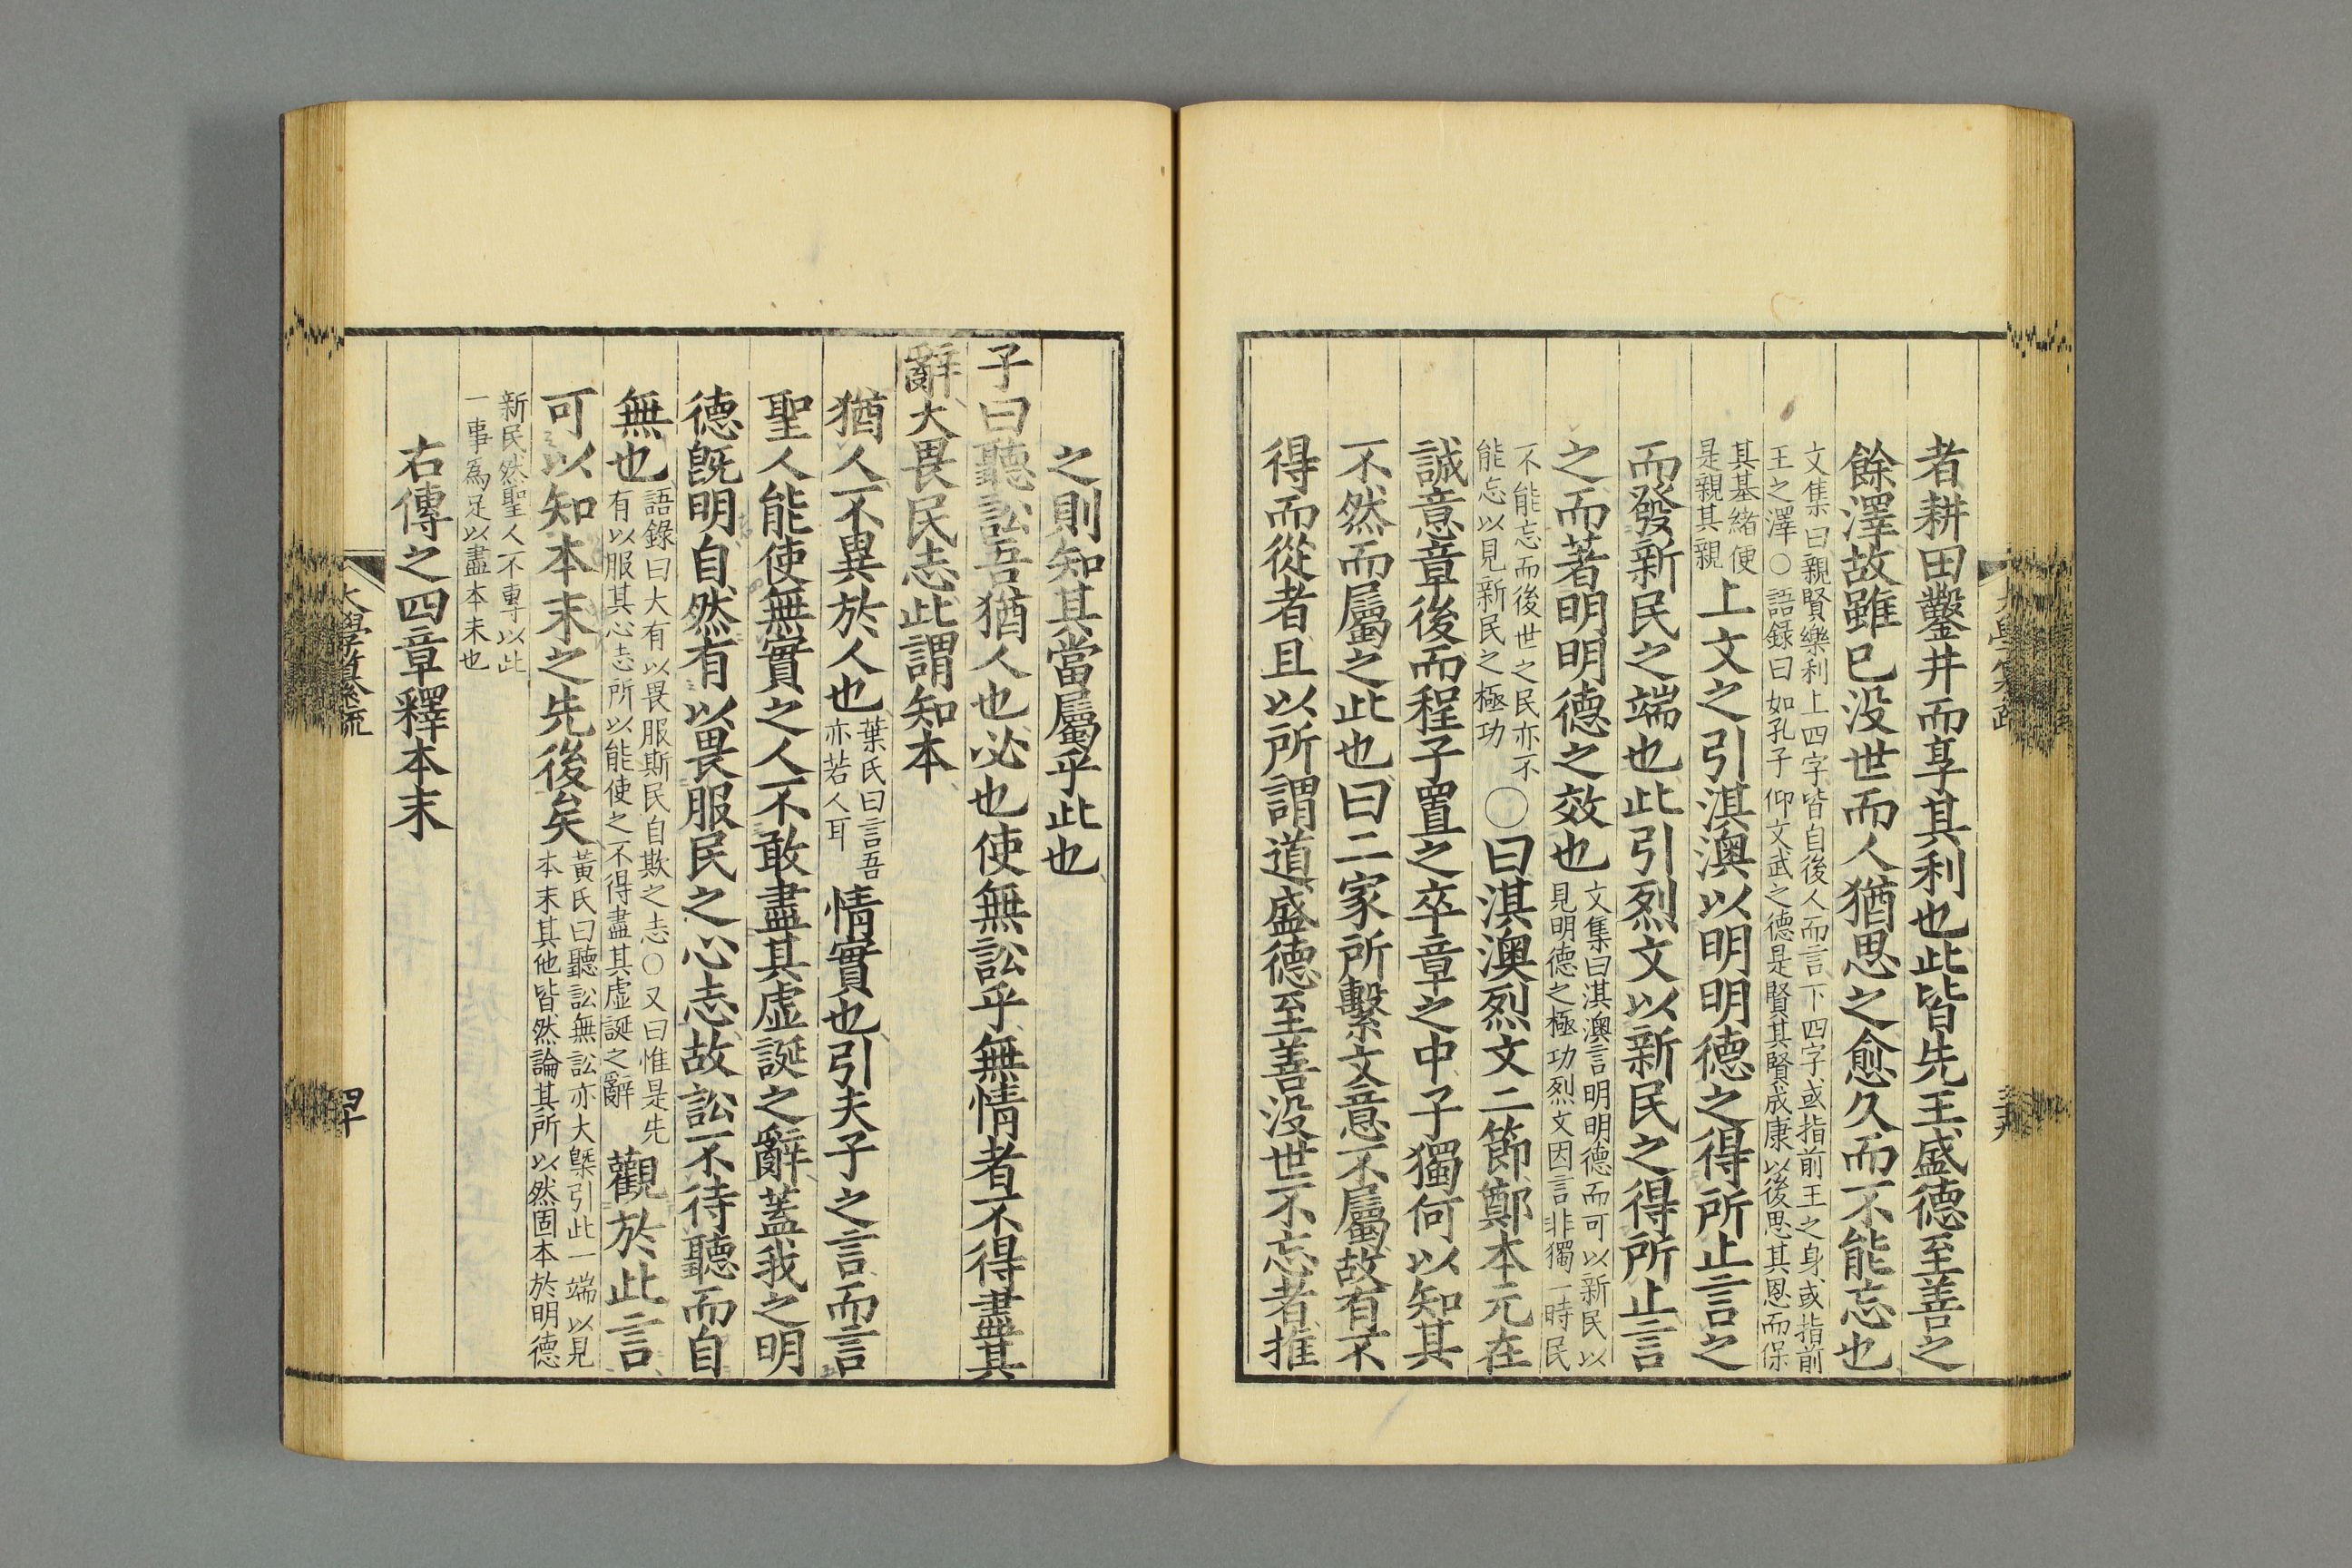 者耕田鑿井而享其利也此皆先王盛德至善之
餘澤故雖已没世而人猶思之愈久而不能忘也
文集曰親賢樂利上四字皆自後人而言下四字或指前王之身或指前
王之澤○語録曰如孔子仰文武之德是賢其賢成康以後思其恩而保
其基緒便
是親其親
上文之引淇澳以明明德之得所止言之
而發新民之端也此引烈文以新民之得所止言
之而著明明德之效也
文集曰淇澳言明明德而可以新民以
見明德之極功烈文因言非獨一時民
不能忘而後世之民亦不
能忘以見新民之極功
○曰淇澳烈文二節鄭本元在
誠意章後而程子置之卒章之中子獨何以知其
不然而屬之此也曰二家所繫文意不屬故有不
得而從者且以所謂道盛德至善没世不忘者推
之則知其當屬乎此也
子曰聽訟吾猶人也必也使無訟乎無情者不得盡其
辭大畏民志此謂知本
猶人不異於人也
葉氏曰言吾
亦若人耳
情實也引夫子之言而言
聖人能使無實之人不敢盡其虚誕之辭蓋我之明
德既明自然有以畏服民之心志故訟不待聽而自
無也
語録曰大有以畏服斯民自欺之志○又曰惟是先
有以服其心志所以能使之不得盡其虚誕之辭
觀於此言
可以知本末之先後矣
黄氏曰聽訟無訟亦大槩引此一端以見
本末其他皆然論其所以然固本於明德
新民然聖人不專以此
一事為足以盡本末也
右傳之四章釋本末